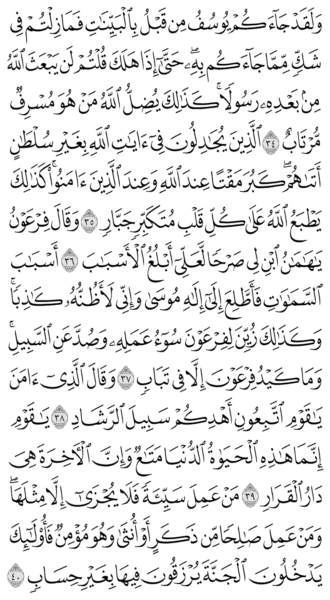 وَلَقَدْ جَآءَكُمْ يُوسُفُ مِن قَبْلُ بِٱلْبَيِّنَٰتِ فَمَا زِلْتُمْ فِى
شَكٍّ مِّمَّا جَآءَكُم بِهِۦ ۖ حَتَّىٰٓ إِذَا هَلَكَ قُلْتُمْ لَن يَبْعَثَ ٱللَّهُ
مِنۢ بَعْدِهِۦ رَسُولًا ۚ كَذَٰلِكَ يُضِلُّ ٱللَّهُ مَنْ هُوَ مُسْرِفٌ
مُّرْتَابٌ ٣٤ ٱلَّذِينَ يُجَٰدِلُونَ فِىٓ ءَايَٰتِ ٱللَّهِ بِغَيْرِ سُلْطَٰنٍ
أَتَىٰهُمْ ۖ كَبُرَ مَقْتًا عِندَ ٱللَّهِ وَعِندَ ٱلَّذِينَ ءَامَنُوا۟ ۚ كَذَٰلِكَ
يَطْبَعُ ٱللَّهُ عَلَىٰ كُلِّ قَلْبِ مُتَكَبِّرٍ جَبَّارٍ ٣٥ وَقَالَ فِرْعَوْنُ
يَٰهَٰمَٰنُ ٱبْنِ لِى صَرْحًا لَّعَلِّىٓ أَبْلُغُ ٱلْأَسْبَٰبَ ٣٦ أَسْبَٰبَ
ٱلسَّمَٰوَٰتِ فَأَطَّلِعَ إِلَىٰٓ إِلَٰهِ مُوسَىٰ وَإِنِّى لَأَظُنُّهُۥ كَٰذِبًا ۚ
وَكَذَٰلِكَ زُيِّنَ لِفِرْعَوْنَ سُوٓءُ عَمَلِهِۦ وَصُدَّ عَنِ ٱلسَّبِيلِ ۚ
وَمَا كَيْدُ فِرْعَوْنَ إِلَّا فِى تَبَابٍ ٣٧ وَقَالَ ٱلَّذِىٓ ءَامَنَ
يَٰقَوْمِ ٱتَّبِعُونِ أَهْدِكُمْ سَبِيلَ ٱلرَّشَادِ ٣٨ يَٰقَوْمِ
إِنَّمَا هَٰذِهِ ٱلْحَيَوٰةُ ٱلدُّنْيَا مَتَٰعٌ وَإِنَّ ٱلْءَاخِرَةَ هِىَ
دَارُ ٱلْقَرَارِ ٣٩ مَنْ عَمِلَ سَيِّئَةً فَلَا يُجْزَىٰٓ إِلَّا مِثْلَهَا ۖ
وَمَنْ عَمِلَ صَٰلِحًا مِّن ذَكَرٍ أَوْ أُنثَىٰ وَهُوَ مُؤْمِنٌ فَأُو۟لَٰٓئِكَ
يَدْخُلُونَ ٱلْجَنَّةَ يُرْزَقُونَ فِيهَا بِغَيْرِ حِسَابٍ ٤٠